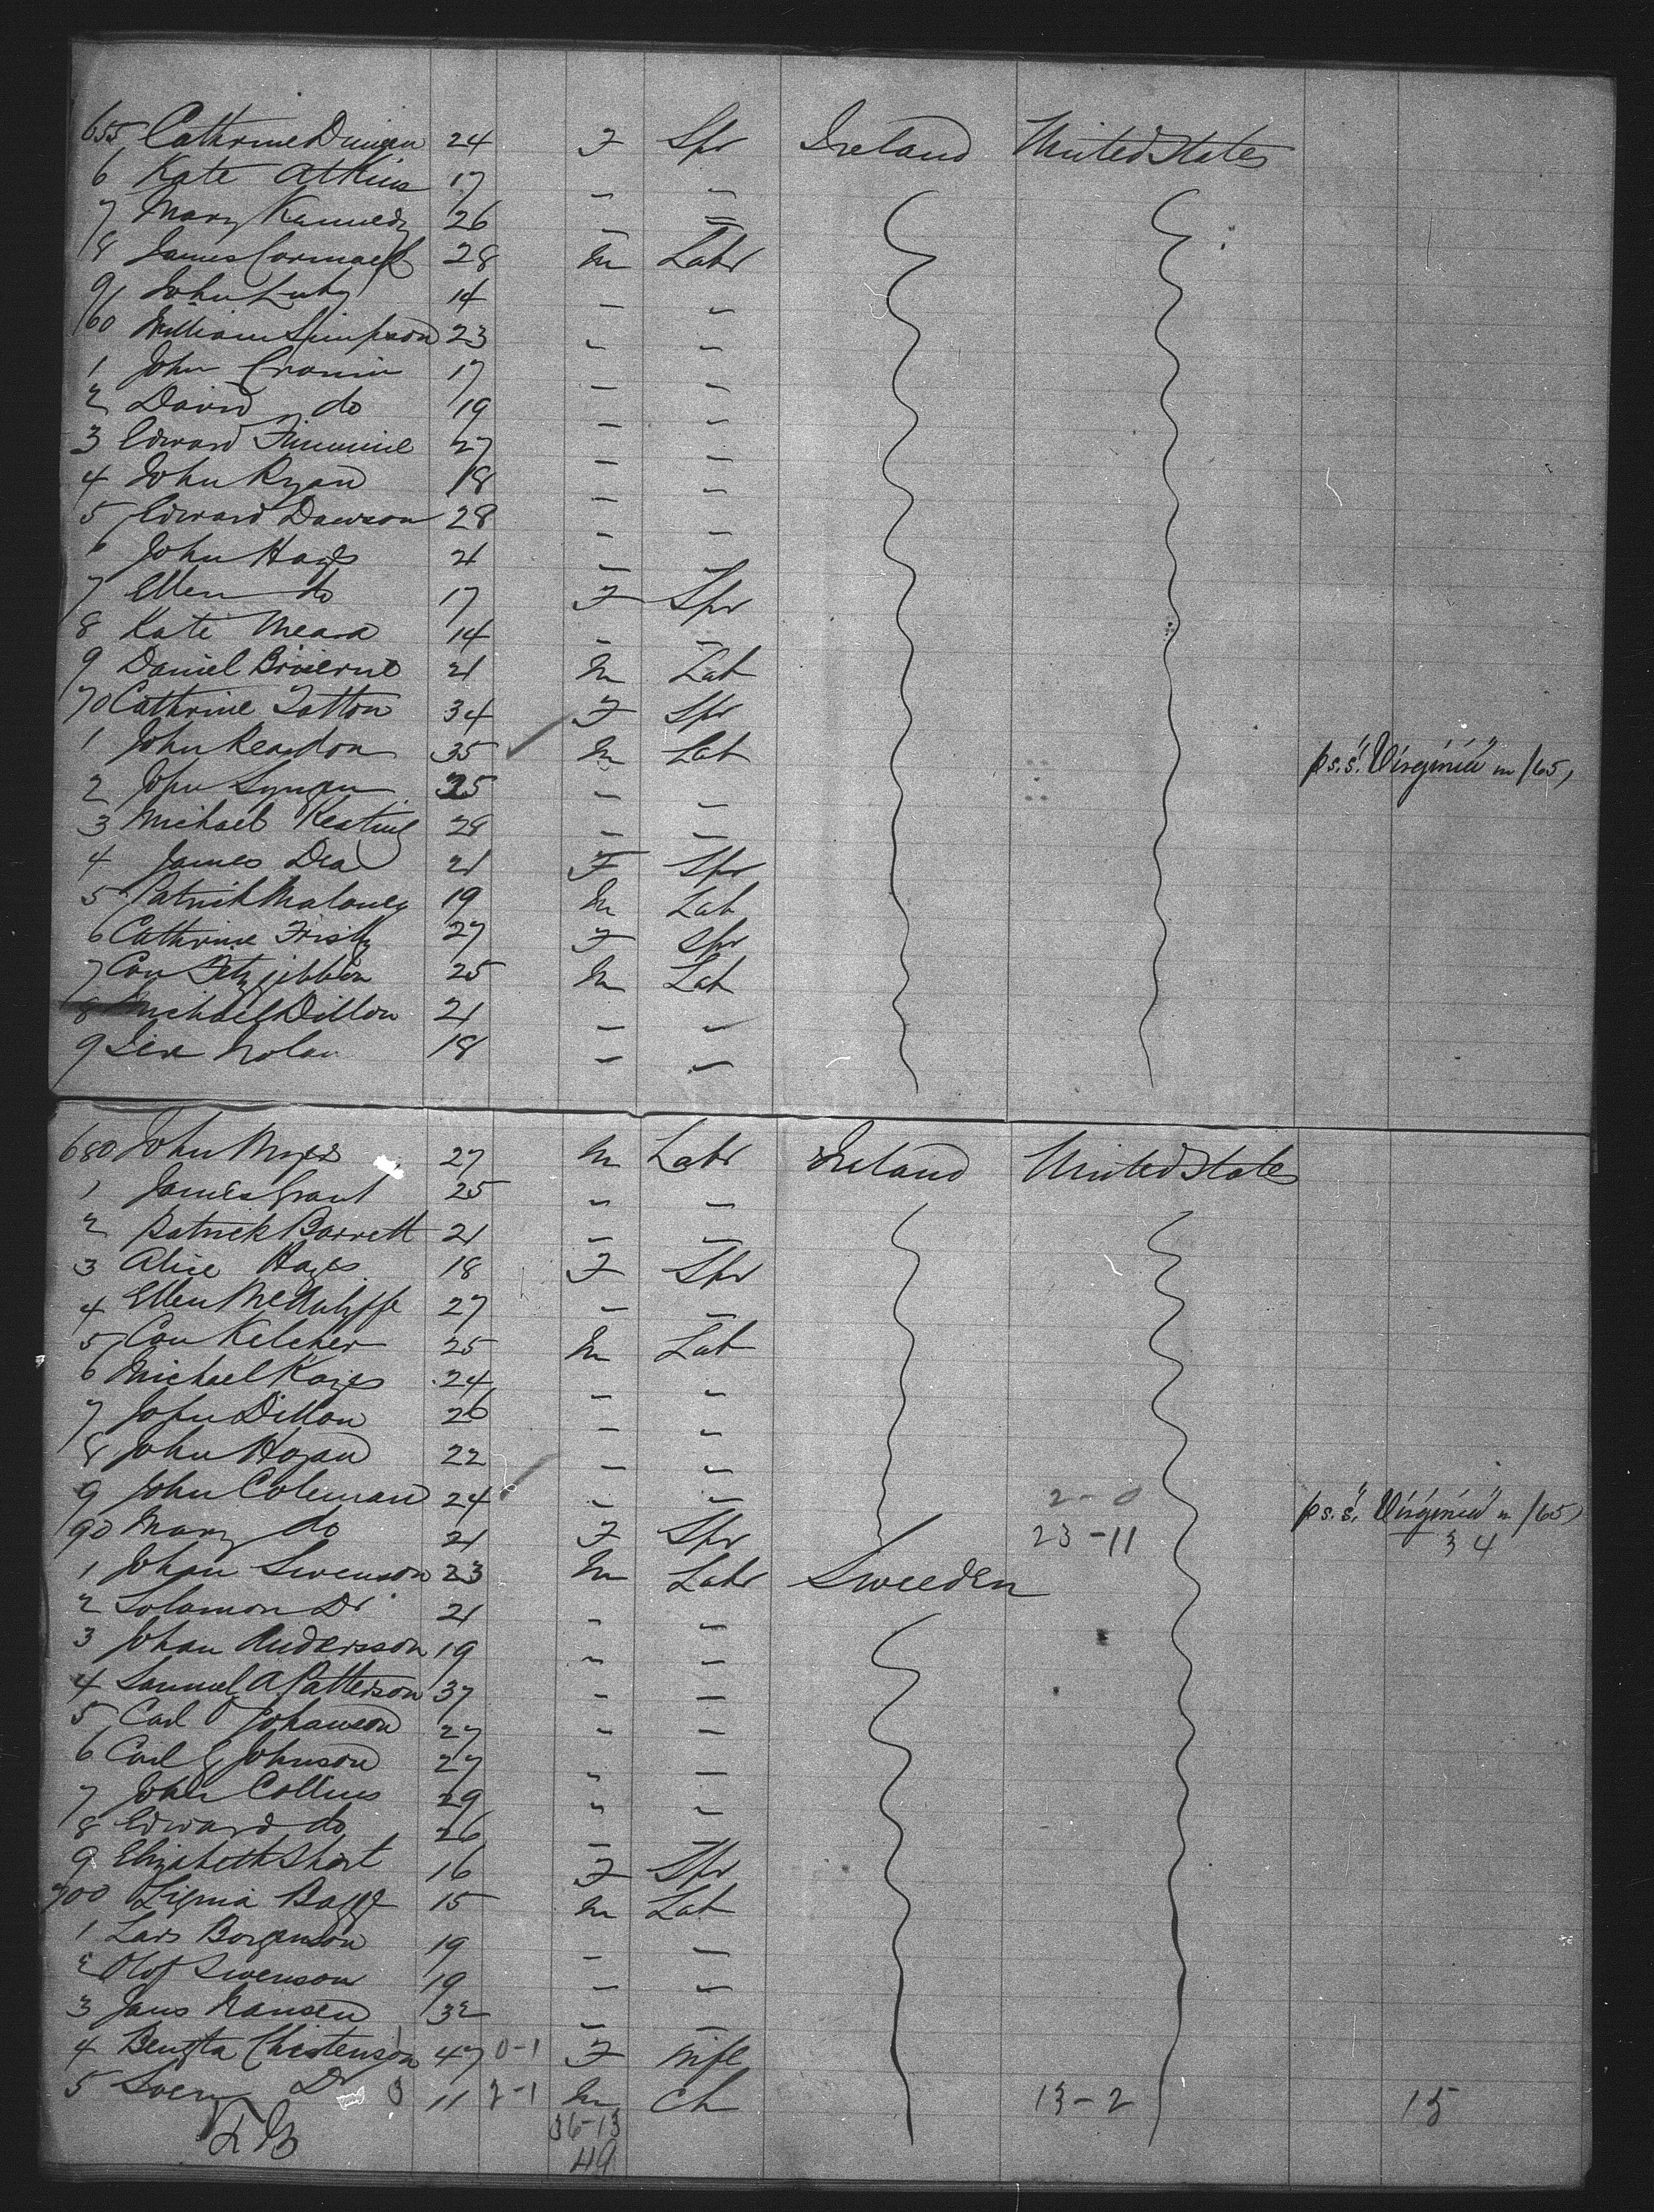 655 Cathrine 24 F Spr Ireland United States
6 Kate Atkins 17 - -
7 Mary Kennedy 26 - =
8 James Cormack 28 M Labr
9 John Luby 14 - -
60 William Simpson 23 - -
1 John Cronin 17 - -
2 David do 19 - -
3 Edward 27 - -
4 John Ryan 18 - -
5 Edward Dawson 28 - -
6 John Hayes 21 - -
7 Ellen do 17 F Spr
8 Kate Meara 14 - -
9 Daniel 21 M Lab
70 Cathrine Tatton 34 F Spr
1 John Reardon 35 M Lab p s.s. "Virginia" in /65,
2 John 35 - -
3 Michael Keating 28 - -
4 James Dea 21 F Spr
5 Patrick Maloney 19 M Lab
6 Cathrine 27 F Spr
7 Con Fitzgibbon 25 M Lab
8 Michael Dillon 21 - -
9 Nolan 18 - -
680 John 27 M Labr Ireland United States
1 James Grant 25 - -
2 Patrick Barrett 21 - -
3 Alice Hayes 18 F Spr
4 Ellen McAuliffe 27 - -
5 Con Kelcher 25 M Lab
6 Michael 24 - -
7 John Dillon 26 - -
8 John Hogan 22 - -
9 John Coleman 24 - - 2-0 p s.s. "Virginia" in /65)
90 Mary do 21 F Spr 23-11 34
1 Johan Swenson 23 M Labr Sweeden
2 Solamon Do 21 - -
3 Johan Andersson 19 - -
4 Samuel A Patterson 37 - -
5 Carl O Johanson 27 - -
6 Carl G Johnson 27 - -
7 John Collins 29 - -
8 Edward do 26 - -
9 Elizabeth Short 16 F Spr
700 Bagge 15 M Lab
1 Lars Borgenson 19 - -
2 Olof Swenson 19 - -
3 Jans Hansen 32 - -
4 Bengta Christenson 47 0-1 F wife
5 Do 3 11 2-1 M Ch 13-2 15
36-13
49